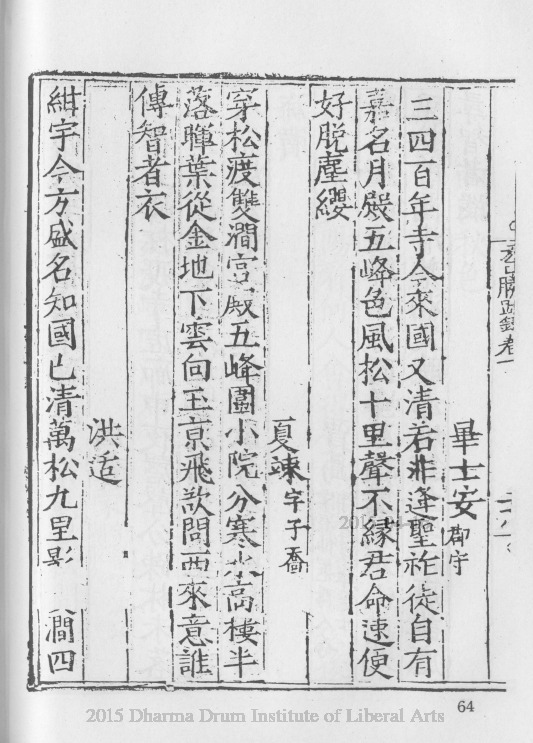 畢士安郡守
三四百年寺今來國又清若非逢聖祚徒自有
嘉名月殿五峰色風松十里聲不緣君命速便
好脫塵纓
夏竦字子喬
穿松渡雙澗宮殿五峰圍小院分寒水高樓半
落暉葉從金地下雲向玉京飛欲問西來意誰
傳智者衣
洪适
紺宇今方盛名知國已清萬松九里影 澗四
64
2015 Dharma Drum Institute of Liberal Arts